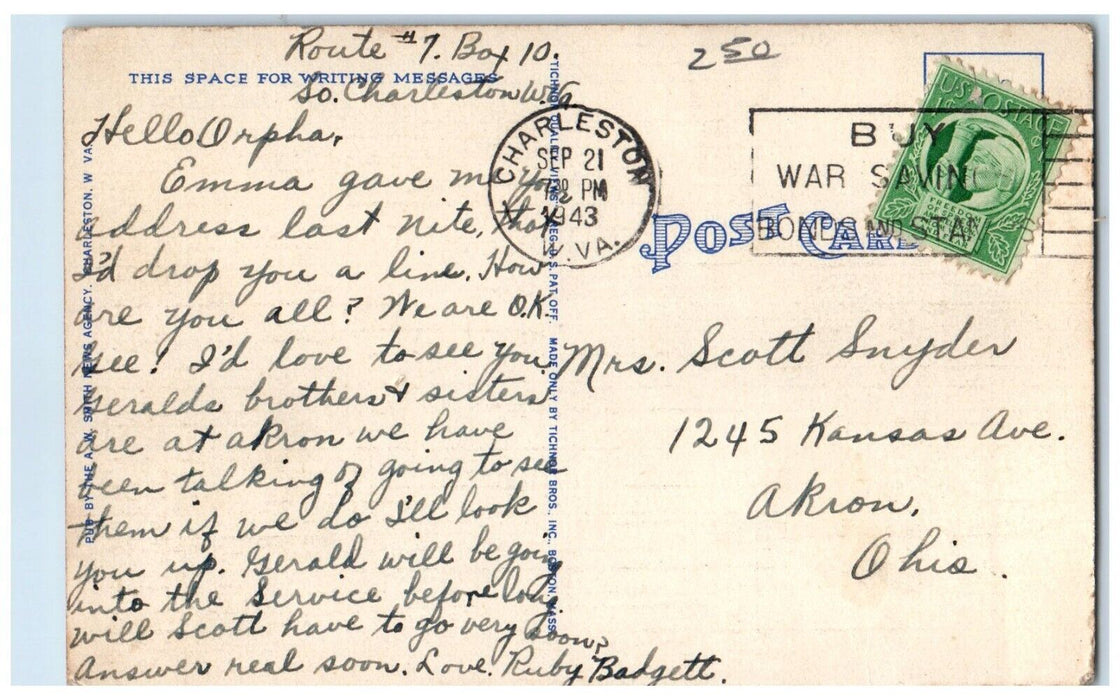 Route #7. Box 10.
THIS SPACE FOR WRITING MESSAGES
So. Charleston W.Va
Hello Orpha,
Emma gave me your
address last nite, that
I'd drop you a line. How
are you all? We are O.K.
see! I'd love to see you
Geralds brothers & sisters
are at akron we have
been talking of going to see
them if we do I'll look
you up. Gerald will be going
into the Service before long.
will Scott have to go very soon?
Answer real soon. Love. Ruby Badgett.
PUB BY THE A. W. SMITH NEWS AGENCY. CHARLESTON. W VA.
TICHNOR QUALITY VIEWS REG. U. S. PAT. OFF. MADE ONLY BY TICHNOR BROS. INC., BOSTON, MASS.
250
CHARLESTON
SEP 21
7 30 PM
1943
W.VA.
BUY
WAR SAVINGS
BONDS AND STAMPS
U.S. POSTAGE
1¢
FREEDOM
POST CARD
Mrs. Scott Snyder
1245 Kansas Ave.
Akron,
Ohio.